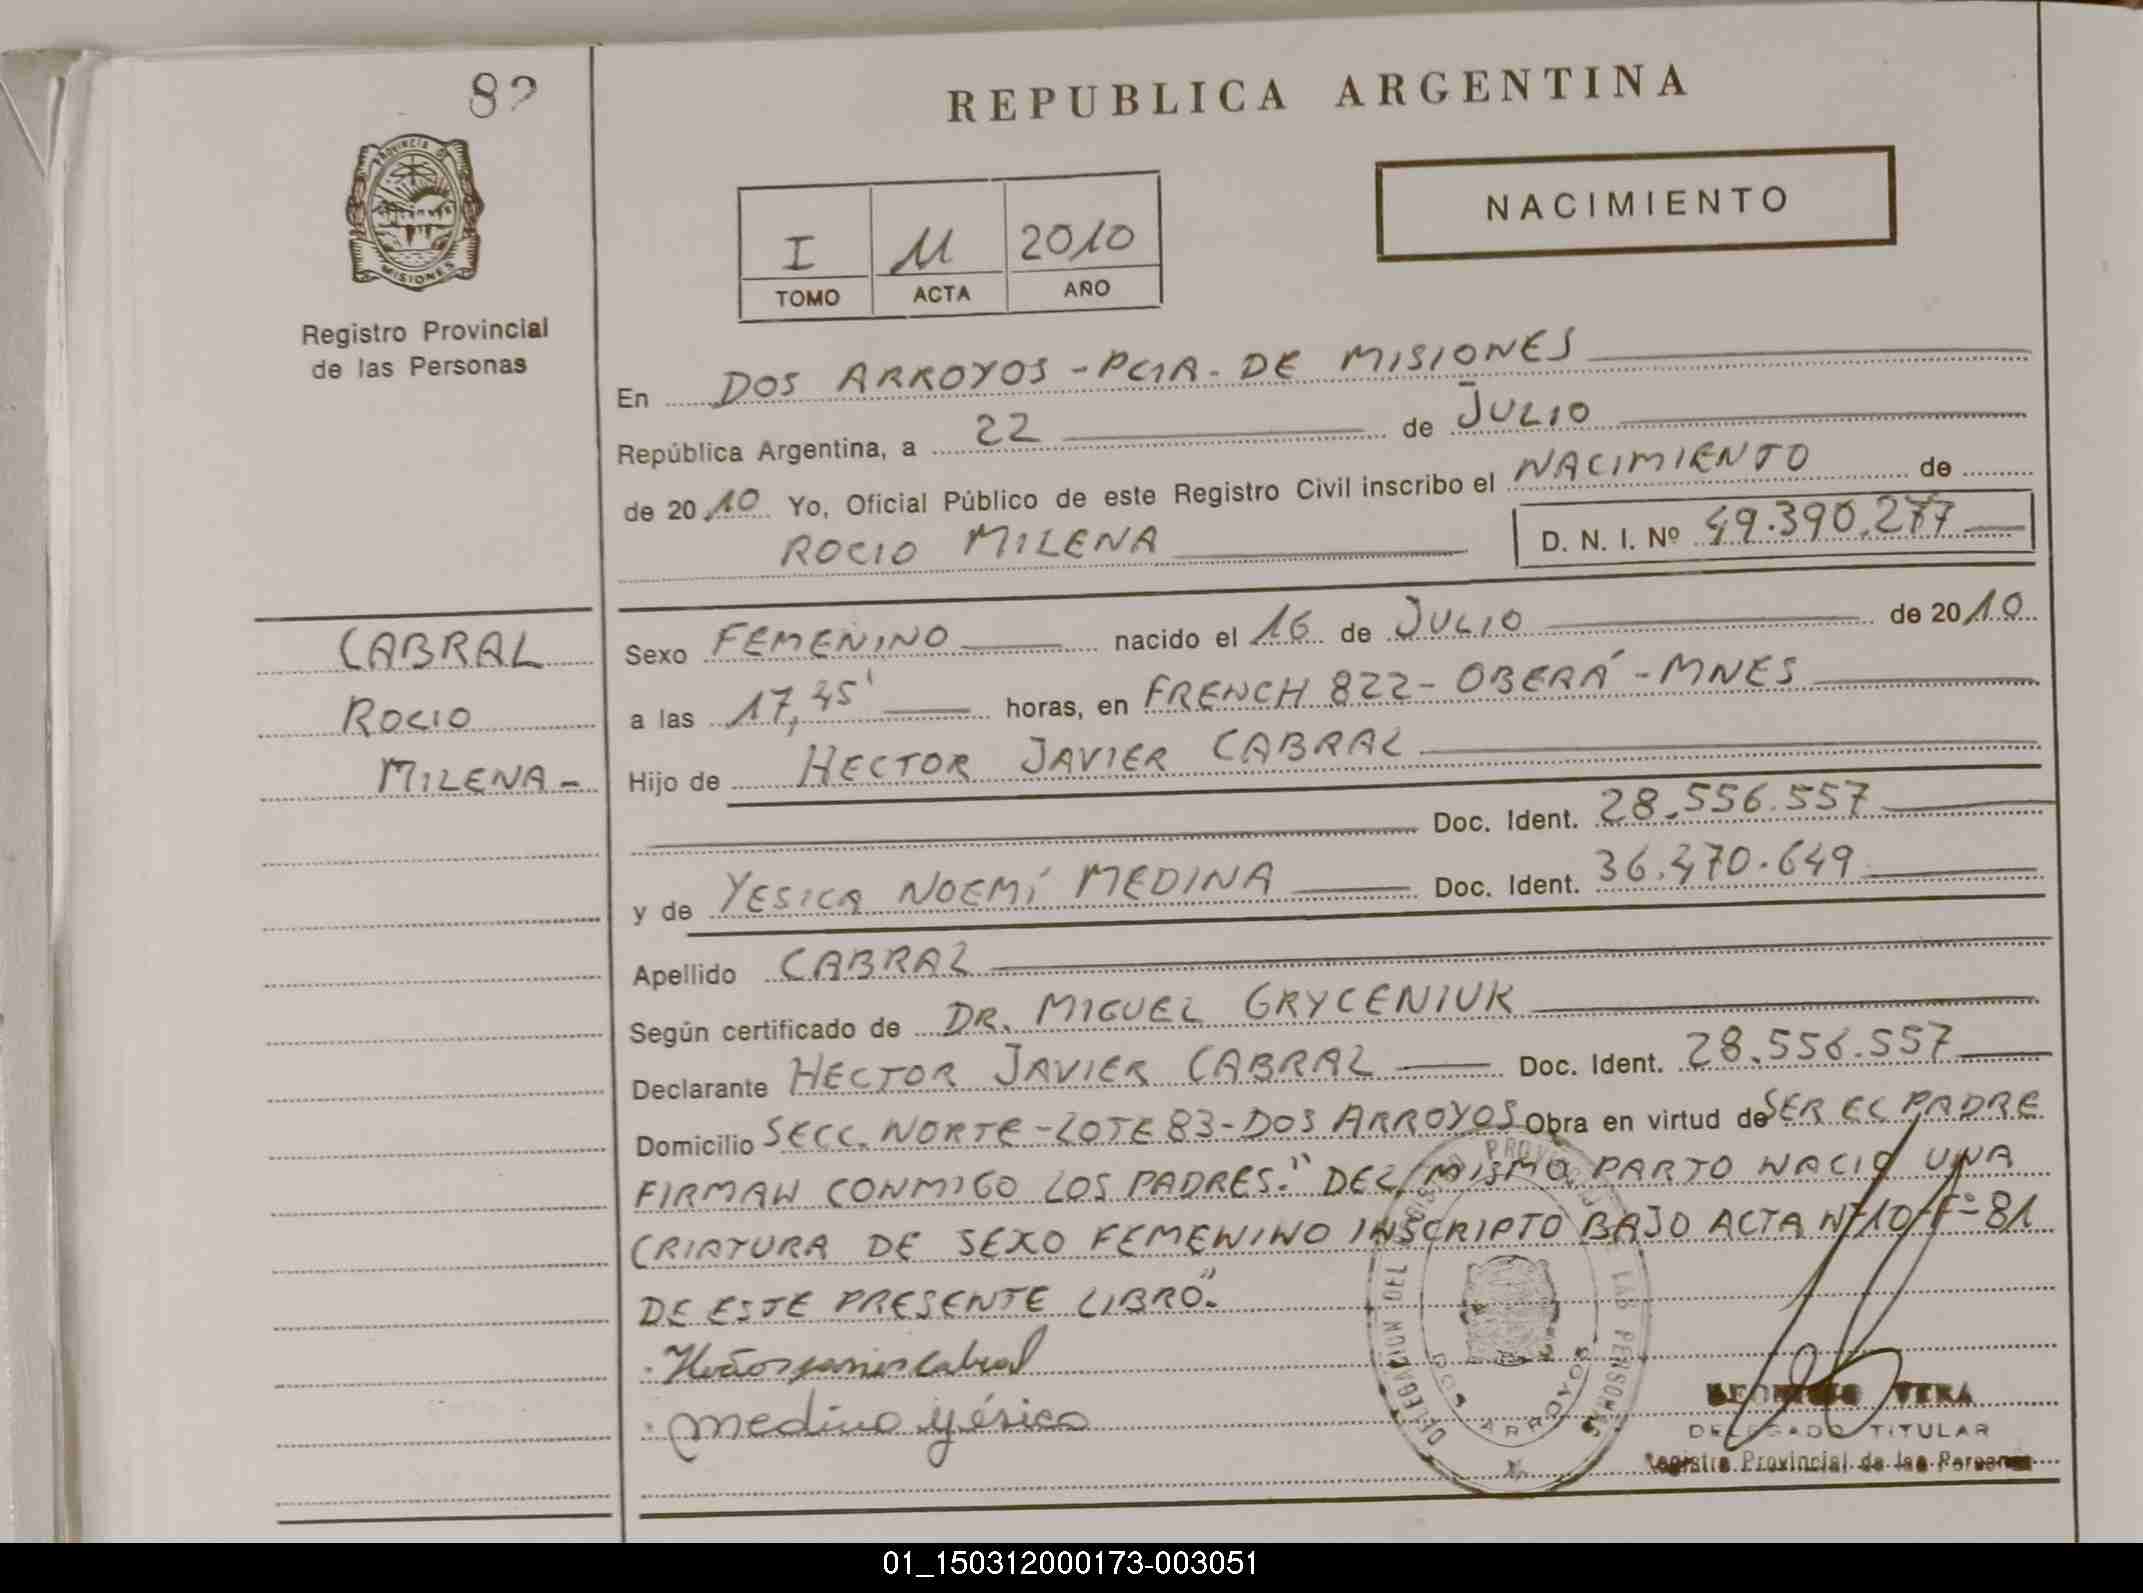 82
REPUBLICA ARGENTINA
PROVINCIA DE
MISIONES
Registro Provincial
de las Personas
I 11 2010
TOMO ACTA AÑO
NACIMIENTO
En DOS ARROYOS - PCIA. DE MISIONES
República Argentina, a 22 de JULIO
de 2010 Yo, Oficial Público de este Registro Civil inscribo el NACIMIENTO de
ROCIO MILENA D. N. I. Nº 49.390.277
CABRAL
ROCIO
MILENA -
Sexo FEMENINO nacido el 16 de JULIO de 2010
a las 17,45' horas, en FRENCH 822 - OBERÁ - MNES
Hijo de HECTOR JAVIER CABRAL
Doc. Ident. 28.556.557
y de YESICA NOEMÍ MEDINA Doc. Ident. 36.470.649
Apellido CABRAL
Según certificado de DR. MIGUEL GRYCENIUK
Declarante HECTOR JAVIER CABRAL Doc. Ident. 28.556.557
Domicilio SECC. NORTE - LOTE 83 - DOS ARROYOS Obra en virtud de SER EL PADRE
FIRMAN CONMIGO LOS PADRES." DEL MISMO PARTO NACIO UNA
CRIATURA DE SEXO FEMENINO INSCRIPTO BAJO ACTA Nº 10 - Fº 81
DE ESTE PRESENTE LIBRO."
Medina Yésica
DELEGACION DEL REGISTRO PROVINCIAL DE LAS PERSONAS
DOS ARROYOS
VERA
DELEGADO TITULAR
Registro Provincial de las Personas
01_150312000173-003051